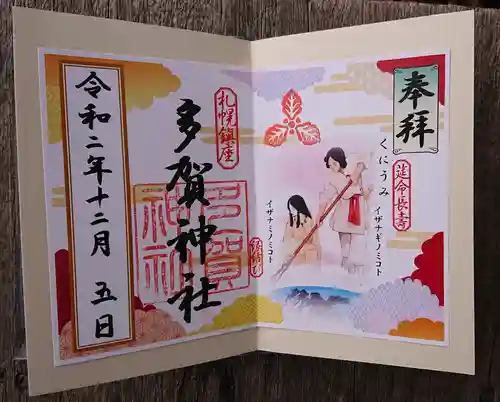 奉拝
延命長寿
くにうみ
イザナギノミコト
イザナミノミコト
縁結び
札幌鎮座
多賀神社
多賀神社
令和二年十二月 五日